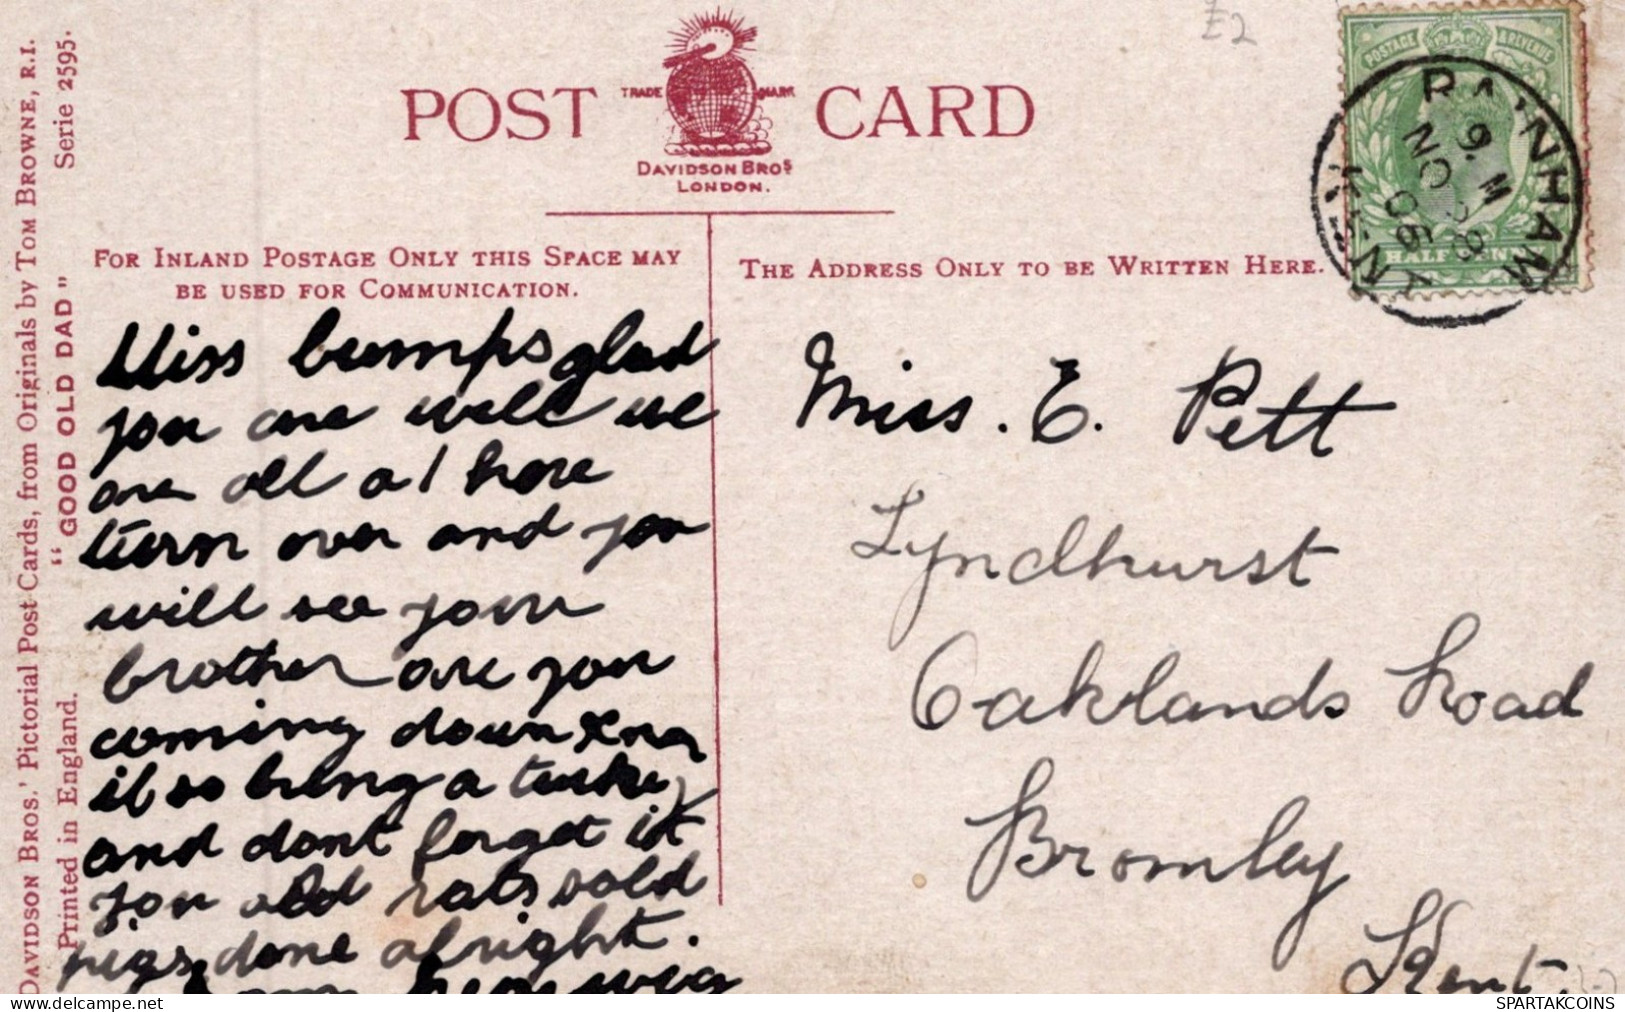 £2
POSTAGE & REVENUE
HALF PENNY
RAINHAM
9. M
NO 28
06
KENT
POST CARD
TRADE MARK
DAVIDSON BROS
LONDON.
FOR INLAND POSTAGE ONLY THIS SPACE MAY
BE USED FOR COMMUNICATION.
THE ADDRESS ONLY TO BE WRITTEN HERE.
DAVIDSON BROS.' Pictorial Post Cards, from Originals by TOM BROWNE, R.I.
Printed in England. "GOOD OLD DAD" Serie 2595.
Miss bumps glad
you are well we
are all a1 here
turn over and you
will see your
brother are you
coming down Xmas
if so bring a turkey
and dont forget it
you old rats sold
pigs done alright.
Miss. E. Pett
Lyndhurst
Oaklands Road
Bromley
Kent.
SPARTAKCOINS